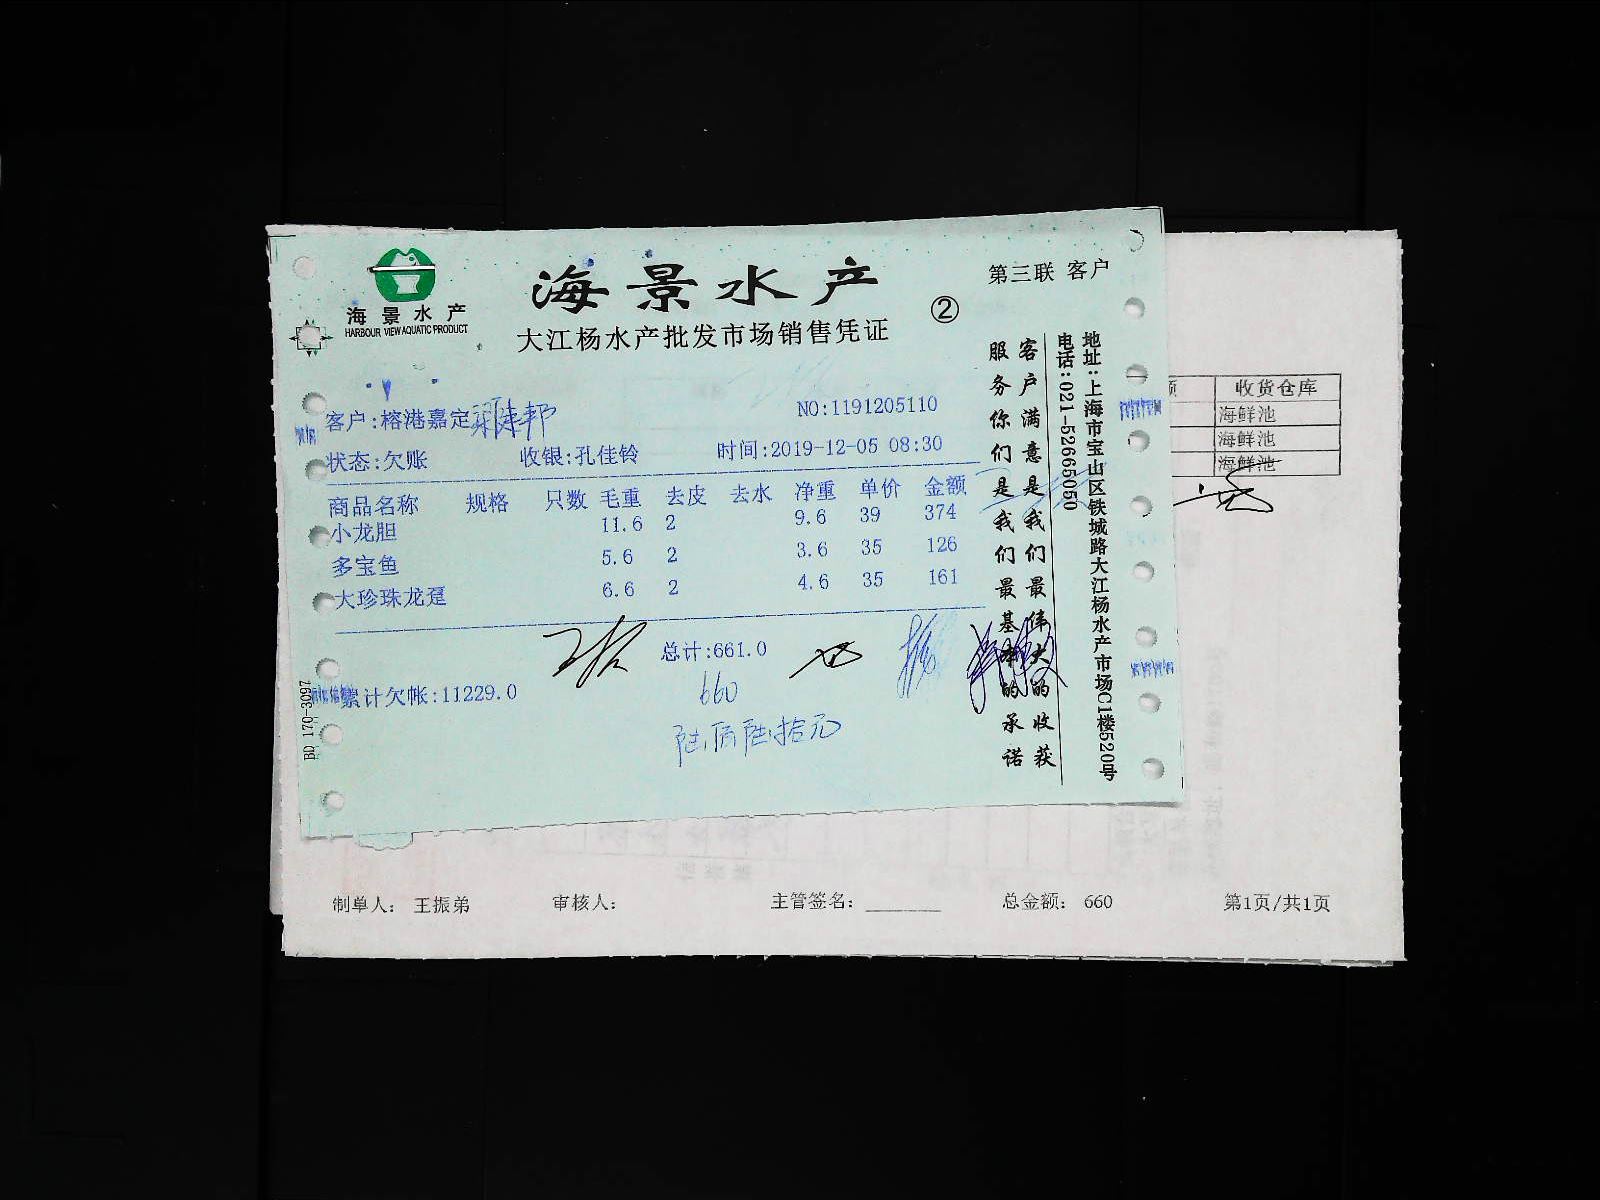 海景水产
HARBOUR VIEW AQUATIC PRODUCT
海景水产
大江杨水产批发市场销售凭证
②
第三联 客户
客户:榕港嘉定
NO:1191205110
状态:欠账 收银:孔佳铃 时间:2019-12-05 08:30
商品名称 规格 只数 毛重 去皮 去水 净重 单价 金额
小龙胆 11.6 2 9.6 39 374
多宝鱼 5.6 2 3.6 35 126
大珍珠龙趸 6.6 2 4.6 35 161
总计:661.0
累计欠帐:11229.0
660
陆佰陆拾元
客户满意是我们最伟大的收获
服务你们是我们最基本的承诺
地址:上海市宝山区铁城路大江杨水产市场C1楼520号
电话:021-52665050
BD 170-3097
收货仓库
海鲜池
海鲜池
海鲜池
制单人: 王振弟 审核人: 主管签名: 总金额: 660 第1页/共1页